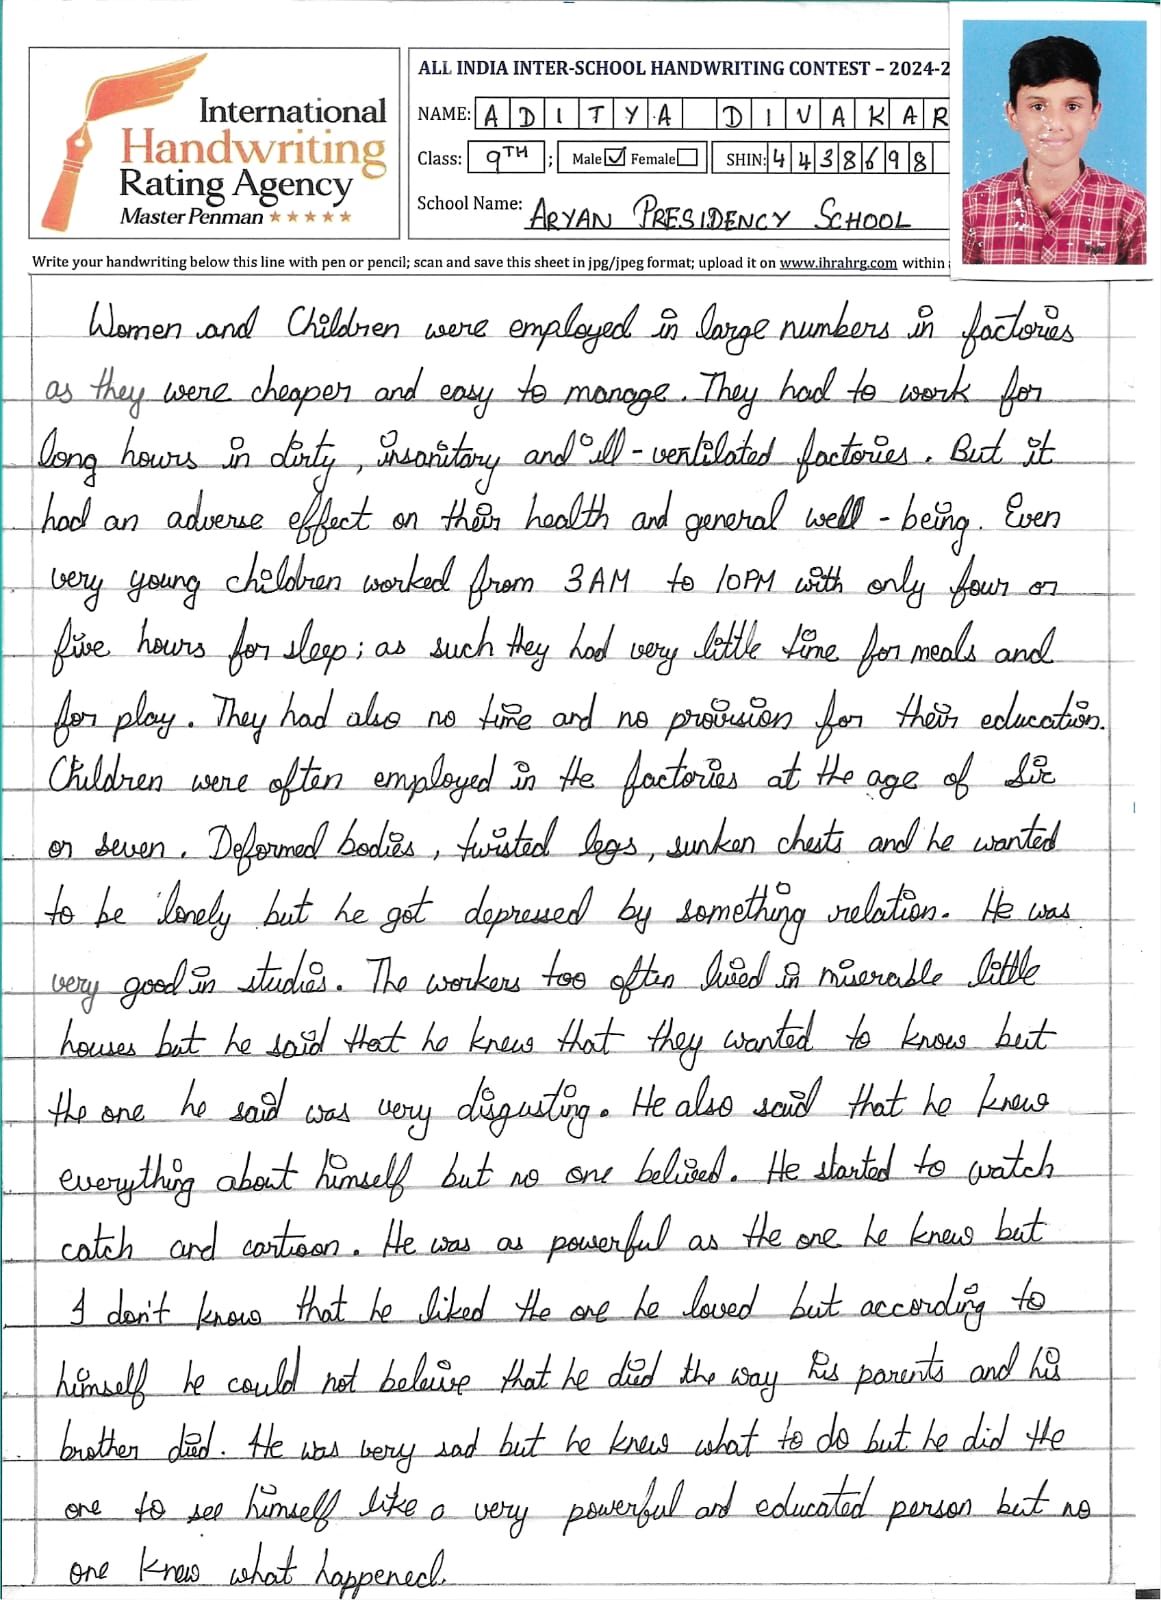 International
Handwriting
Rating Agency
Master Penman
ALL INDIA INTER-SCHOOL HANDWRITING CONTEST – 2024-2
NAME: ADITYA DIVAKAR
Class: 9TH ; Male ☑ Female ☐ SHIN: 4438698
School Name: ARYAN PRESIDENCY SCHOOL
Write your handwriting below this line with pen or pencil; scan and save this sheet in jpg/jpeg format; upload it on www.ihrahrg.com within
Women and Children were employed in large numbers in factories
as they were cheaper and easy to manage. They had to work for
long hours in dirty, insanitary and ill-ventilated factories. But it
had an adverse effect on their health and general well-being. Even
very young children worked from 3AM to 10PM with only four or
five hours for sleep; as such they had very little time for meals and
for play. They had also no time and no provision for their education.
Children were often employed in the factories at the age of Six
or seven. Deformed bodies, twisted legs, sunken chests and he wanted
to be lonely but he got depressed by something relation. He was
very good in studies. The workers too often lived in miserable little
houses but he said that he knew that they wanted to know but
the one he said was very disgusting. He also said that he knew
everything about himself but no one belived. He started to watch
catch and cartoon. He was as powerful as the one he knew but
I don't know that he liked the one he loved but according to
himself he could not beleive that he died the way his parents and his
brother died. He was very sad but he knew what to do but he did the
one to see himself like a very powerful and educated person but no
one knew what happened.